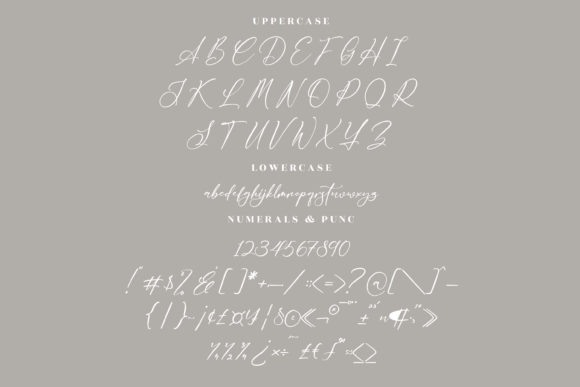 UPPERCASE
ABCDEFGHI
JKLMNOPQR
STUVWXYZ
LOWERCASE
abcdefghijklmnopqrstuvwxyz
NUMERALS & PUNC
1234567890
!"#$%&'[]*+—/:;<=>?@[\]_
{|}~¡¢£¤¥¦§©«¬®¯°±"¶»
¼½¾¿×÷